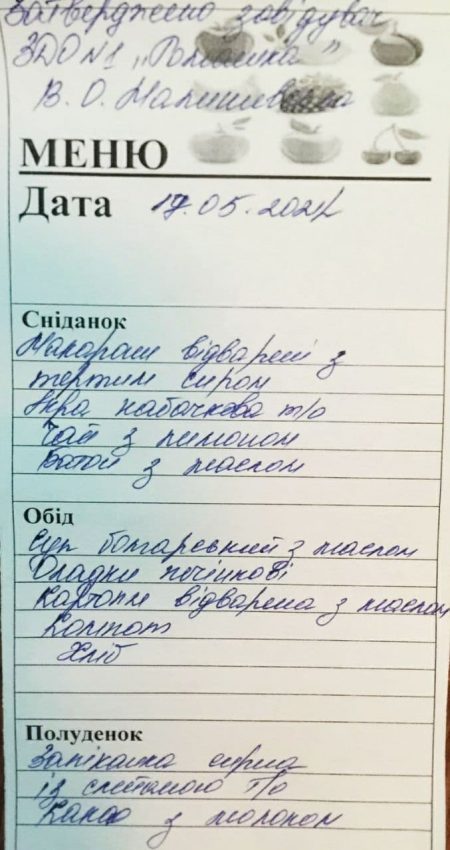 Затверджено завідувач
ЗДО №1 „Ромашка"
В. О.
МЕНЮ
Дата 17.05.2021
Сніданок
Макарони відварені з
тертим сиром
Ікра кабачкова т/о
Чай з лимоном
Батон з маслом
Обід
Суп болгарський з маслом
Оладки печінкові
Картопля відварена з маслом
Компот
Хліб
Полуденок
Запіканка сирна
із сметаною т/о
Какао з молоком